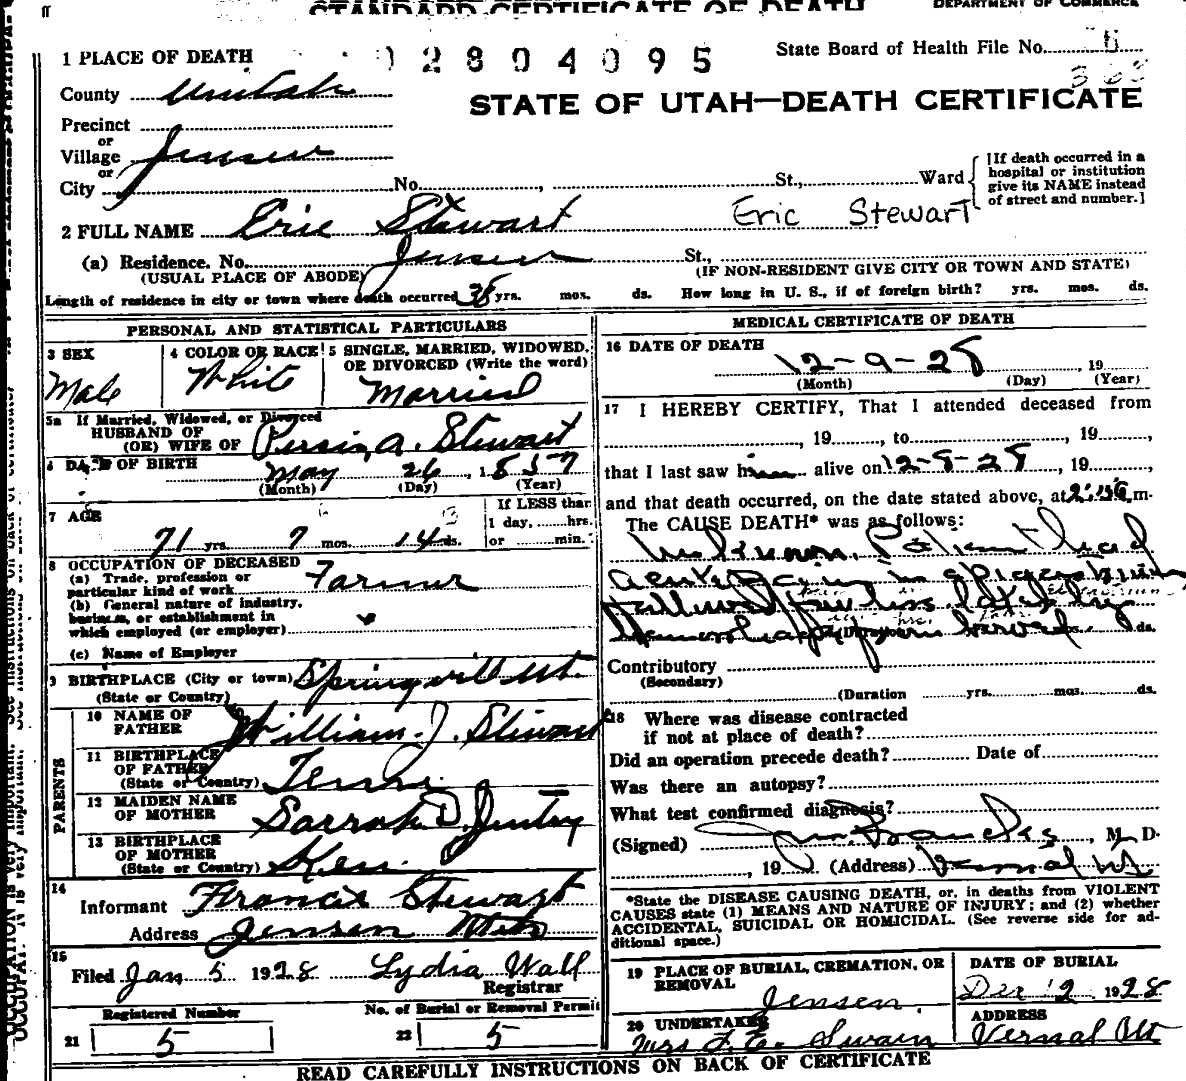 STANDARD CERTIFICATE OF DEATH
DEPARTMENT OF COMMERCE
1 PLACE OF DEATH
2804095
State Board of Health File No.
368
County Uintah
STATE OF UTAH—DEATH CERTIFICATE
Precinct
or
Village Jensen
or
City No. , St., Ward
[If death occurred in a
hospital or institution
give its NAME instead
of street and number.]
2 FULL NAME Eric Stewart Eric Stewart
(a) Residence. No. Jensen St.,
(USUAL PLACE OF ABODE) (IF NON-RESIDENT GIVE CITY OR TOWN AND STATE)
Length of residence in city or town where death occurred 38 yrs. mos. ds. How long in U. S., if of foreign birth? yrs. mos. ds.
PERSONAL AND STATISTICAL PARTICULARS
3 SEX
Male
4 COLOR OR RACE
White
5 SINGLE, MARRIED, WIDOWED,
OR DIVORCED (Write the word)
Married
5a If Married, Widowed, or Divorced
HUSBAND OF
(OR) WIFE OF A. Stewart
6 DATE OF BIRTH May 26, 1857
(Month) (Day) (Year)
7 AGE
71 yrs. 7 mos. 14 ds.
If LESS than
1 day, hrs.
or min.
8 OCCUPATION OF DECEASED
(a) Trade, profession or
particular kind of work Farmer
(b) General nature of industry,
business, or establishment in
which employed (or employer)
(c) Name of Employer
9 BIRTHPLACE (City or town) Springville Ut.
(State or Country)
PARENTS
10 NAME OF
FATHER William J. Stewart
11 BIRTHPLACE
OF FATHER
(State or Country) Tenn.
12 MAIDEN NAME
OF MOTHER Sarrah D. Jentry
13 BIRTHPLACE
OF MOTHER
(State or Country) Ken.
14
Informant Francis Stewart
Address Jensen Utah
15
Filed Jan 5 1928 Lydia Wall
Registrar
Registered Number
21 5
No. of Burial or Removal Permit
22 5
MEDICAL CERTIFICATE OF DEATH
16 DATE OF DEATH
12-9-28, 19
(Month) (Day) (Year)
17 I HEREBY CERTIFY, That I attended deceased from
, 19 , to , 19 ,
that I last saw him alive on 12-9-28, 19 ,
and that death occurred, on the date stated above, at m.
The CAUSE DEATH* was as follows:
Unknown. Patient had
acute pain in
followed few hrs. later by
Hemorrhage from bowel
(Duration ds.
Contributory
(Secondary)
(Duration yrs. mos. ds.
18 Where was disease contracted
if not at place of death?
Did an operation precede death? Date of
Was there an autopsy?
What test confirmed diagnosis?
(Signed) Francke, M. D.
, 19 (Address) Vernal Ut
*State the DISEASE CAUSING DEATH, or, in deaths from VIOLENT
CAUSES state (1) MEANS AND NATURE OF INJURY; and (2) whether
ACCIDENTAL, SUICIDAL OR HOMICIDAL. (See reverse side for ad-
ditional space.)
19 PLACE OF BURIAL, CREMATION, OR
REMOVAL
Jensen.
DATE OF BURIAL
Dec 12, 1928
20 UNDERTAKER
Mrs Swain
ADDRESS
Vernal Ut
READ CAREFULLY INSTRUCTIONS ON BACK OF CERTIFICATE